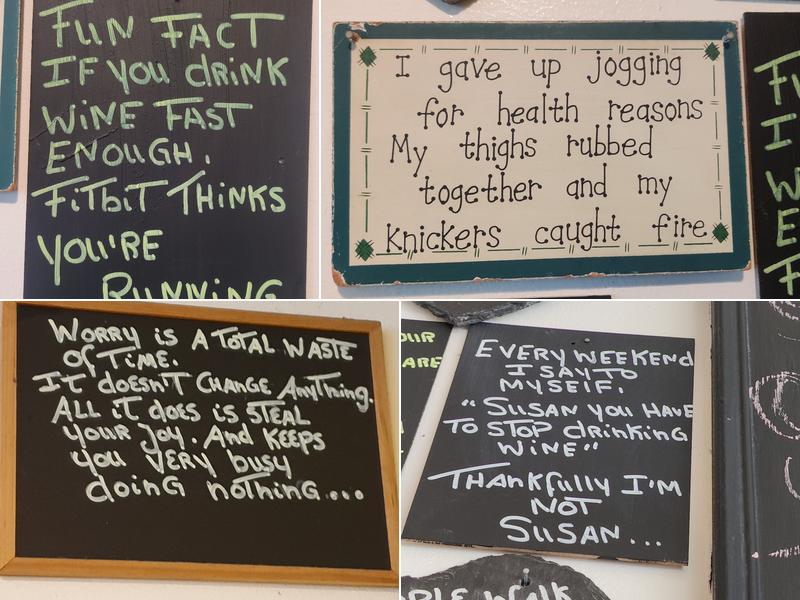 FUN FACT
IF YOU drINK
WINE FAST
ENOUGH.
FiTbiT THINKS
YOU'RE
RUNNING
I gave up jogging
for health reasons
My thighs rubbed
together and my
knickers caught fire
WORRY iS A TOTAL WASTE
OF TiME.
IT doESN'T CHANGE AnyThing.
ALL iT dOES iS STEAL
YOUR JOY. And KEEPS
you VERY busy
doing nothing...
EVERY WEEKENd
I SAY TO
MYSElF.
"SUSAN you HAVE
TO STOP drinking
WiNE"
THAnkfully I'M
NOT
SUSAN...
OUR
ARE
WALK